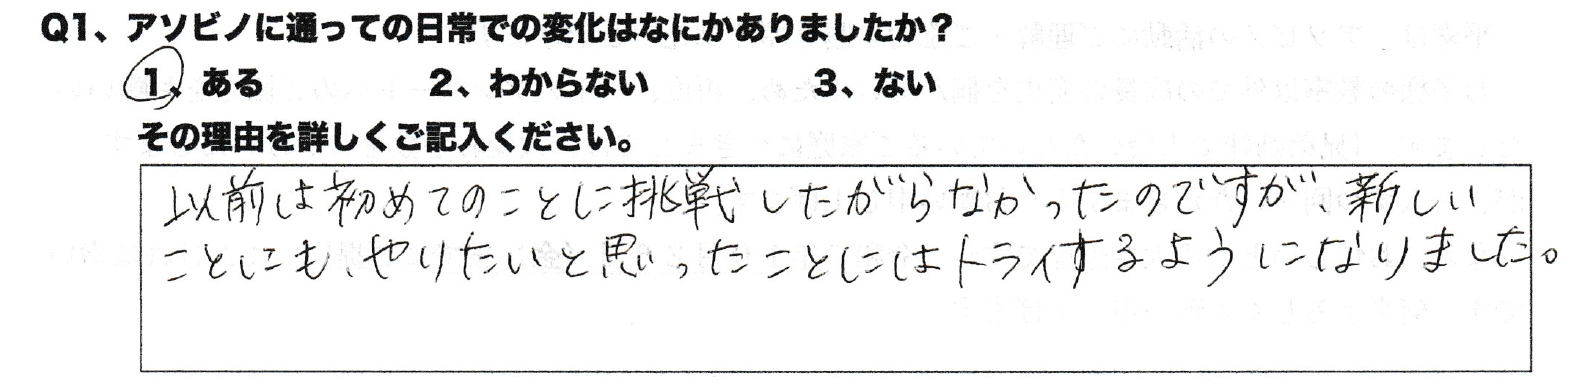 Q1、アソビノに通っての日常での変化はなにかありましたか？
1、ある 2、わからない 3、ない
その理由を詳しくご記入ください。
以前は初めてのことに挑戦したがらなかったのですが、新しい
ことにも、やりたいと思ったことにはトライするようになりました。